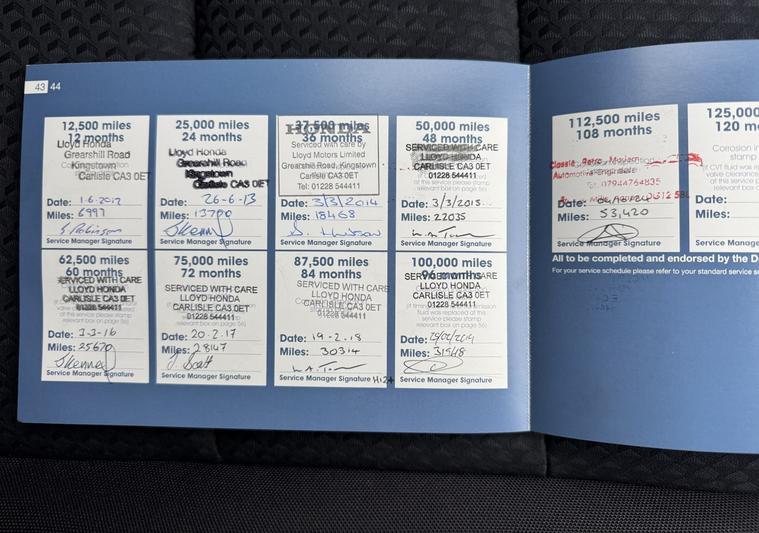 43 44
12,500 miles
12 months
Lloyd Honda
Grearshill Road
Kingstown
Carlisle CA3 0ET
Date: 1-6-2012
Miles: 6997
S Robinson
Service Manager Signature
25,000 miles
24 months
Lloyd Honda
Grearshill Road
Kingstown
Carlisle CA3 0ET
Date: 26-6-13
Miles: 13700
Service Manager Signature
37,500 miles
HONDA
36 months
Serviced with care by
Lloyd Motors Limited
Grearshill Road, Kingstown
Carlisle CA3 0ET
Tel: 01228 544411
Date: 3/3/2014
Miles: 18468
Service Manager Signature
50,000 miles
48 months
SERVICED WITH CARE
LLOYD HONDA
CARLISLE CA3 0ET
01228 544411
Date: 3/3/2015
Miles: 22035
Service Manager Signature
62,500 miles
60 months
SERVICED WITH CARE
LLOYD HONDA
CARLISLE CA3 0ET
01228 544411
at this service please stamp
relevant box on page 56)
Date: 3-3-16
Miles: 25670
Service Manager Signature
75,000 miles
72 months
SERVICED WITH CARE
LLOYD HONDA
CARLISLE CA3 0ET
01228 544411
at this service please stamp
relevant box on page 56)
Date: 20.2.17
Miles: 28147
J. Scott
Service Manager Signature
87,500 miles
84 months
SERVICED WITH CARE
LLOYD HONDA
CARLISLE CA3 0ET
01228 544411
Date: 19-2-18
Miles: 30314
Service Manager Signature
100,000 miles
96 months
SERVICED WITH CARE
LLOYD HONDA
CARLISLE CA3 0ET
01228 544411
fluid was replaced at this
service please stamp
relevant box on page 56)
Date: 28/02/2019
Miles: 31548
Service Manager Signature
112,500 miles
108 months
Classic Retro Modern
Automotive Engineers
07944764835
Date:
Miles: 53,420
Service Manager Signature
125,00
120 m
Corrosion in
stamp
Date:
Miles:
Service Man
All to be completed and endorsed by the D
For your service schedule please refer to your standard service s